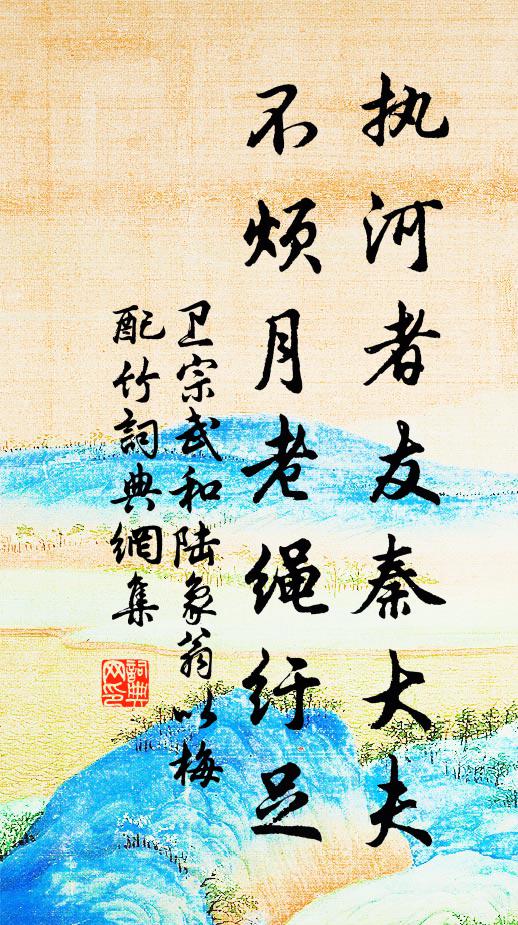 执河者友秦大夫
不烦月老绳纡足
卫宗武和陆象翁以梅
配竹詞典網集
詞典
网印